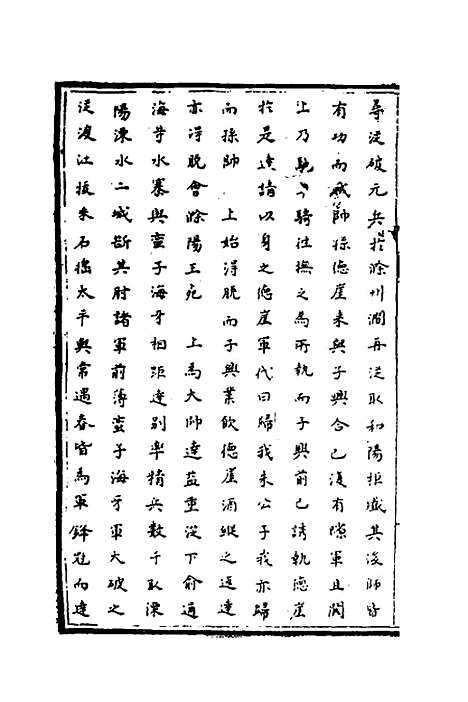 尋從破元兵於滁州澗再從取和陽拒殱其後師皆
有功而戚師孫德崖来與子興合已復有隙軍且閧
上乃馳一騎往撫之為所執而子興前已誘執德崖
於是達請以身之德崖軍代曰歸我朱公子我亦歸
而孫帥　上始淂脱而子興業飲德崖酒縱之返達
亦淂脱會滁陽王死　上為大帥達益重從下俞通
海等水寨與蠻子海牙相距達别率精兵数千取溧
陽溧水二城斷其肘諸軍前薄蛮子海牙軍大破之
従渡江拔采石搗太平與常遇春皆為軍鋒冠而達